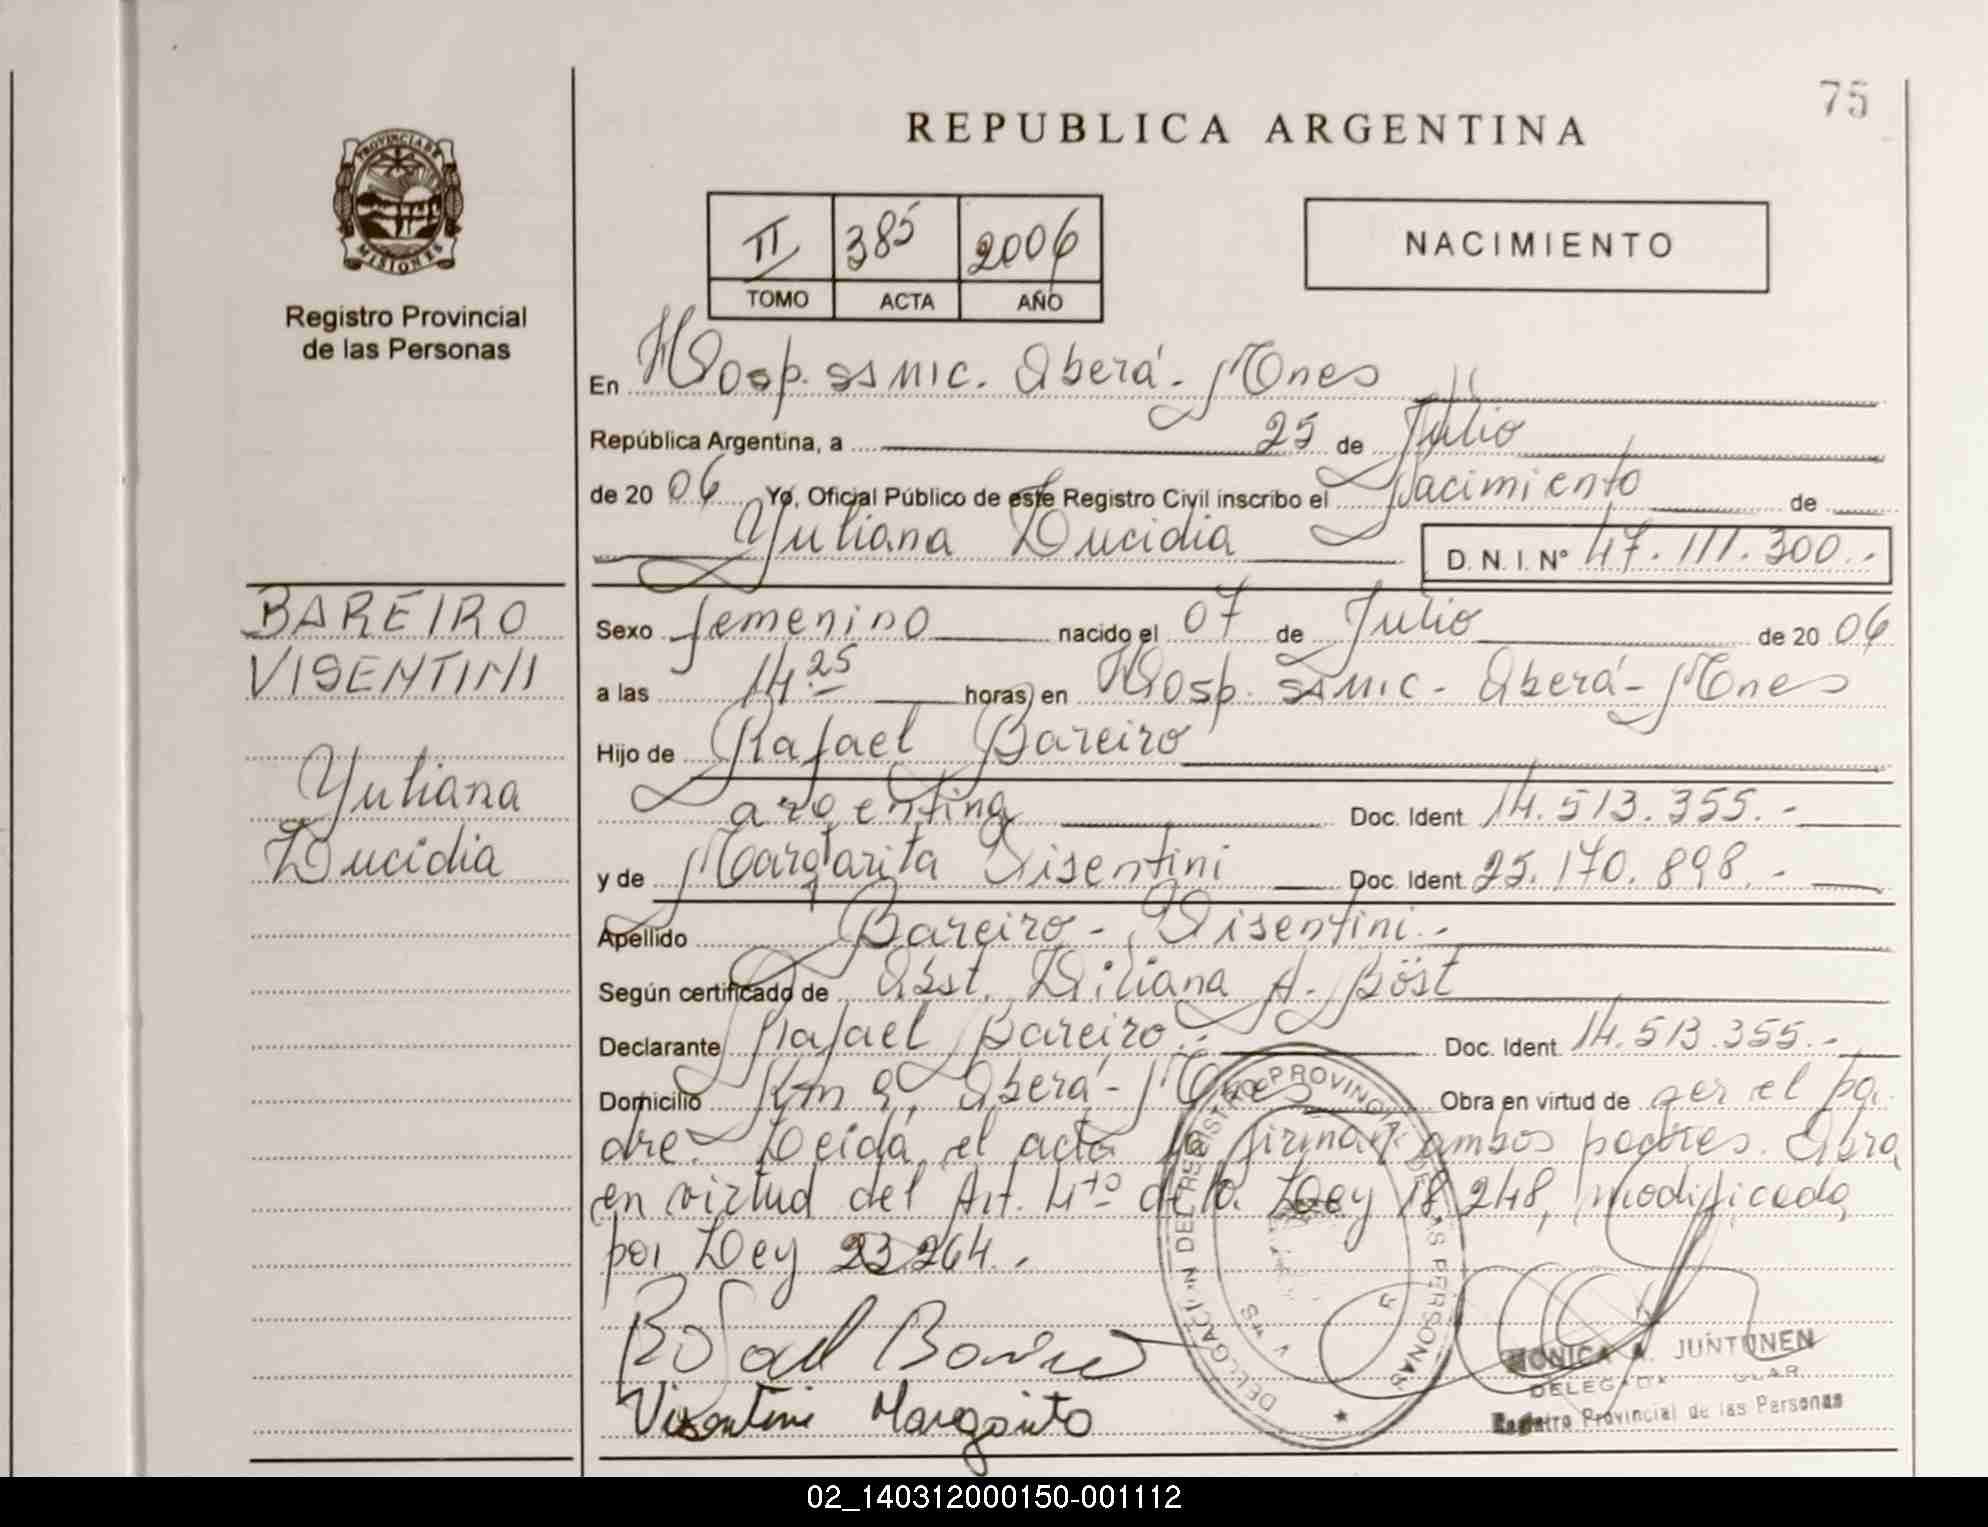 75
REPUBLICA ARGENTINA
PROVINCIA DE
MISIONES
Registro Provincial
de las Personas
II 385 2006
TOMO ACTA AÑO
NACIMIENTO
En Hosp. SSMIC. Oberá - Mnes
República Argentina, a 25 de Julio
de 20 06 Yo, Oficial Público de este Registro Civil inscribo el Nacimiento de
Yuliana Lucidia D. N. I. N° 47.111.300.-
BAREIRO
VISENTINI
Yuliana
Lucidia
Sexo femenino nacido el 07 de Julio de 20 06
a las 14.25 horas, en Hosp. SSMIC - Oberá - Mnes
Hijo de Rafael Bareiro
argentina Doc. Ident. 14.513.355.-
y de Margarita Visentini Doc. Ident. 25.170.898.-
Apellido Bareiro - Visentini.-
Según certificado de Obst. Liliana A. Böst
Declarante Rafael Bareiro.- Doc. Ident. 14.513.355.-
Domicilio Km 9, Oberá - Mnes Obra en virtud de ser el pa-
dre. Leida el acta la firman ambos padres. Obra
en virtud del Art. 4to de la Ley 18.248, modificada
por Ley 23.264.-
Rafael Bareiro
Visentini Margarita
DELEGACION DEL REGISTRO PROVINCIAL DE LAS PERSONAS
MONICA A. JUNTUNEN
Registro Provincial de las Personas
02_140312000150-001112